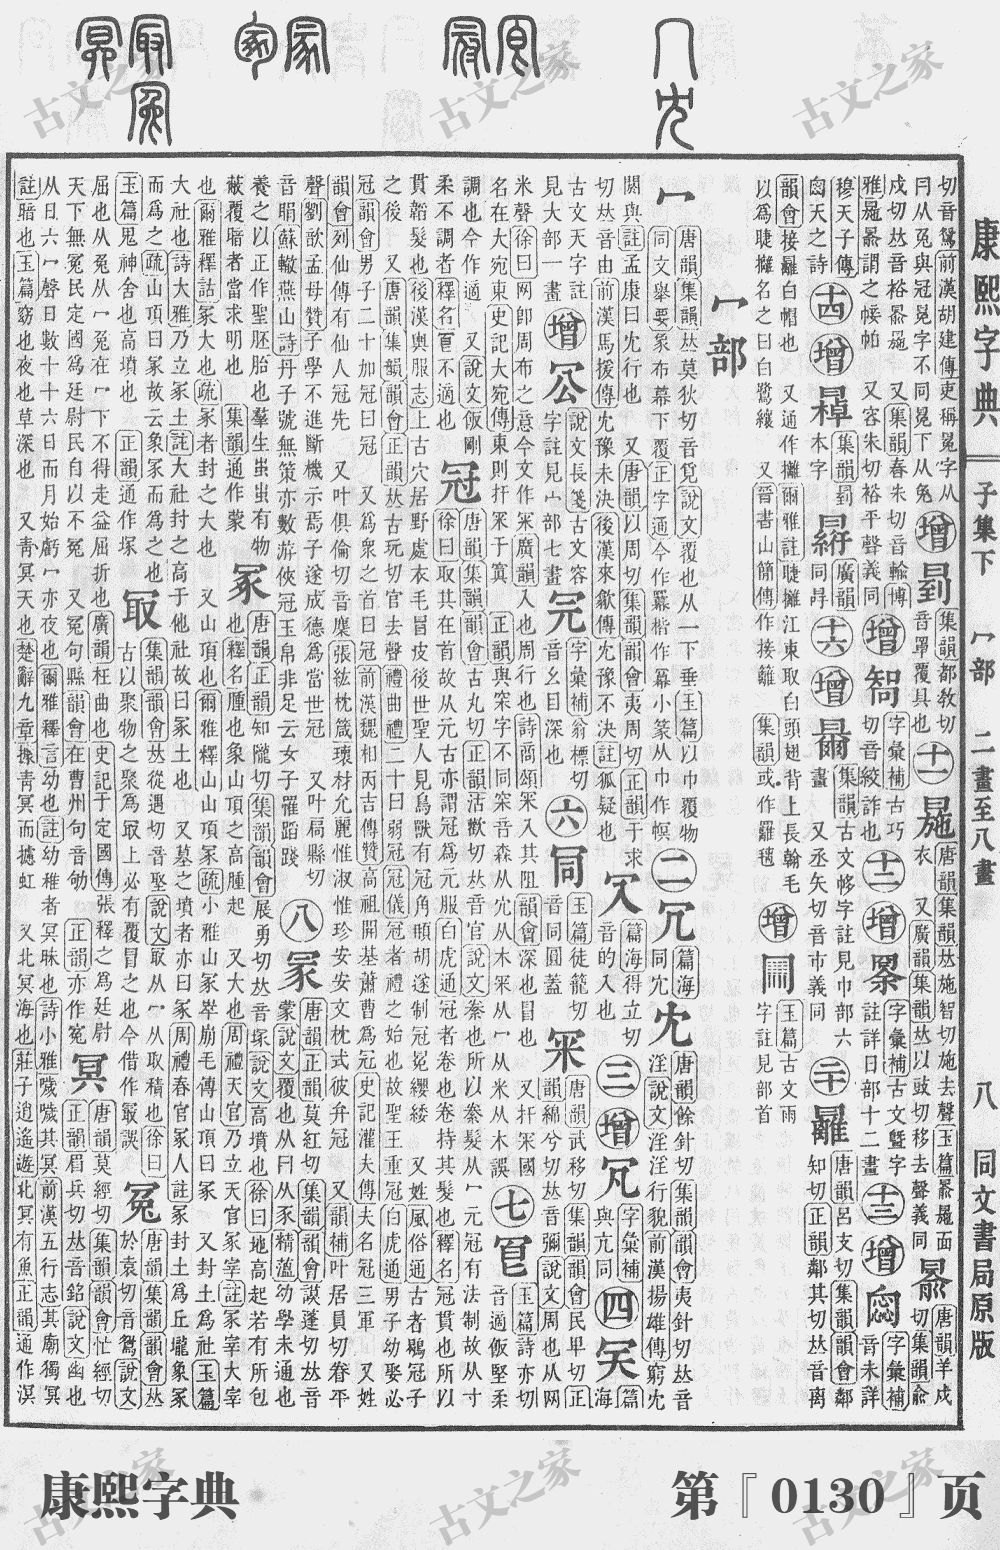 康熙字典
子集下 冖部 二畫至八畫
八
同文書局原版
切音鴛前漢胡建傳
增
集韻都敎切
音罩覆具也
十一
唐韻集韻𠀤施智切施去聲玉篇
衣 又廣韻集韻𠀤以豉切移去聲義同
唐韻羊戍
切集韻俞
戍切𠀤音裕 又集韻春朱切音輸博
雅 謂之㡋帕 又容朱切裕平聲義同
增
字彙補古巧
切音絞詐也
十二
增
字彙補古文曁字
註詳日部十二畫
十三
增
字彙補
音未詳
穆天子傳
天之詩
十四
增
集韻罰
本字
廣韻
同
十六
增
集韻古文帹字註見巾部六
畫 又丞矢切音市義同
二十
唐韻呂支切集韻韻會鄰
知切正韻鄰其切𠀤音離
韻會接䍦白帽也 又通作攡爾雅註䀹攡江東取白頭翅背上長翰毛
以爲䀹攡名之曰白鷺縗 又晉書山簡傳作接䍦 集韻或作羅𣰽
增
玉篇古文雨
字註見部首
冂部
冖
唐韻集韻𠀤莫狄切音覓說文覆也从一下垂玉篇以巾覆物
同文舉要象布幕下覆正字通今作羃楷作冪小篆从巾作幎
二
冗
篇海
同冘
冘
唐韻餘針切集韻韻會夷針切𠀤音
淫說文淫淫行貌前漢揚雄傳窮冘
閼與註孟康曰冘行也 又唐韻以周切集韻韻會夷周切正韻于求
切𠀤音由前漢馬援傳冘豫未決後漢來歙傳冘豫不決註狐疑也
篇海得立切
音的入也
三
增
字彙補
與亢同
四
篇海
古文天字註
見大部一畫
增
說文長箋古文容
字註見宀部七畫
字彙補翁標切
音幺目深也
六
玉篇徒籠切
音同圓蓋
冞
唐韻武移切集韻韻會民𤰞切正
韻綿兮切𠀤音彌說文周也从网
米聲徐曰网卽周布之意今文作冞廣韻入也周行也詩商頌冞入其阻
名在大宛東史記大宛傳東則扜冞于窴 正韻與罙字不同罙音森从
韻會深也冒也 又扜冞國
穴从木冞从冖从米从木誤
七
玉篇詩亦切
音適飯堅柔
調也今作適 又說文飯剛
柔不調者釋名 不適也
冠
唐韻集韻韻會古丸切正韻活歡切𠀤音官說文絭也所以絭髮从冖元冠有法制故从寸
徐曰取其在首故从元古亦謂冠爲元服白虎通冠者卷也卷持其髮也釋名冠貫也所以
貫韜髮也後漢輿服志上古穴居野處衣毛冒皮後世聖人見鳥獸有冠角䫇胡遂制冠冕纓緌 又姓風俗通古者鶡冠子
之後 又唐韻集韻韻會正韻𠀤古玩切官去聲禮曲禮二十曰弱冠冠儀冠者禮之始也故聖王重冠白虎通男子幼娶必
冠韻會男子二十加冠曰冠 又爲衆之首曰冠前漢魏相丙吉傳贊高祖開基蕭曹爲冠史記灌夫傳夫名冠三軍 又姓
韻會列仙傳有仙人冠先 又叶俱倫切音麇張紘枕箴瓌材允麗惟淑惟珍安安文枕式彼弁冠 又韻補叶居員切眷平
聲劉歆孟母贊子學不進斷機示焉子遂成德爲當世冠 又叶扃縣切
音睊蘇轍燕山詩丹子號無策亦數游俠冠玉帛非足云女子罹蹈踐
八
冡
唐韻正韻莫紅切集韻韻會謨蓬切𠀤音
蒙說文覆也从冃从豕精薀幼學未通也
養之以正作聖胚胎也羣生蚩蚩有物
蔽覆暗者當求明也 集韻通作蒙
冢
唐韻正韻知隴切集韻韻會展勇切𠀤音塚說文高墳也徐曰地高起若有所包
也釋名腫也象山頂之高腫起 又大也周禮天官乃立天官冢宰註冢宰大宰
也爾雅釋詁冢大也疏冢者封之大也 又山頂也爾雅釋山山頂冢疏小雅山冢崒崩毛傳山頂曰冢 又封土爲社玉篇
大社也詩大雅乃立冢土註大社封之高于他社故曰冢土也 又墓之墳者亦曰冢周禮春官冢人註冢封土爲丘壠象冢
而爲之疏山頂曰冢故云象冢而爲之也 正韻通作塚
玉篇鬼神舍也高墳也
冣
集韻韻會𠀤從遇切音堅說文冣从冖从取積也徐曰
古以聚物之聚爲冣上必有覆冒之也今借作最誤
冤
唐韻集韻韻會𠀤
於袁切音鴛說文
屈也从兔从冖兔在冖下不得走益屈折也廣韻枉曲也史記于定國傳張釋之爲廷尉
天下無冤民定國爲廷尉民自以不冤 又冤句縣韻會在曹州句音劬 正韻亦作寃
冥
唐韻莫經切集韻韻會忙經切
正韻眉兵切𠀤音銘說文幽也
从日六冖聲日數十十六日而月始虧冖亦夜也爾雅釋言幼也註幼稚者冥昧也詩小雅噦噦其冥前漢五行志其廟獨冥
註暗也玉篇窈夜也草深也 又靑冥天也楚辭九章據靑冥而攄虹 又北冥海也莊子逍遙遊北冥有魚正韻通作溟
古文之家
康熙字典
第『0130』页